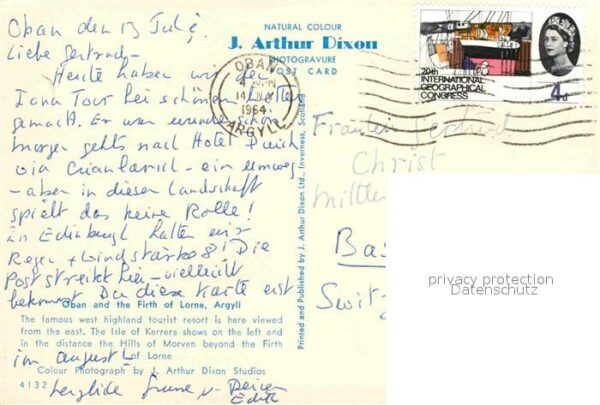 Oban den 13 July.
NATURAL COLOUR
J. Arthur Dixon
PHOTOGRAVURE
POST CARD
Liebe Gertrud –
Heute haben wir den
Iona Tour bei schönem Wetter
gemacht. Er war wunderschön
morgen gehts nach Hotel
via Crianlarich - ein umweg
- aber in dieser Landschaft
spielt das keine Rolle!
In Edinburgh hatten wir
Regen + Windstärke 8! Die
Post streikt hier - vielleicht
bekommst Du diese Karte erst
Oban and the Firth of Lorne, Argyll
The famous west highland tourist resort is here viewed
from the east. The Isle of Kerrera shows on the left and
in the distance the Hills of Morven beyond the Firth
of Lorne
im august!
Colour Photograph by J. Arthur Dixon Studios
4132
herzliche Grüsse v. Deiner
Edith
Printed and Published by J. Arthur Dixon Ltd., Inverness, Scotland
OBAN
14 JLY
1964
ARGYLL
20th
INTERNATIONAL
GEOGRAPHICAL
CONGRESS
4d
Fräulein
Christ
Ba
Switz
privacy protection
Datenschutz